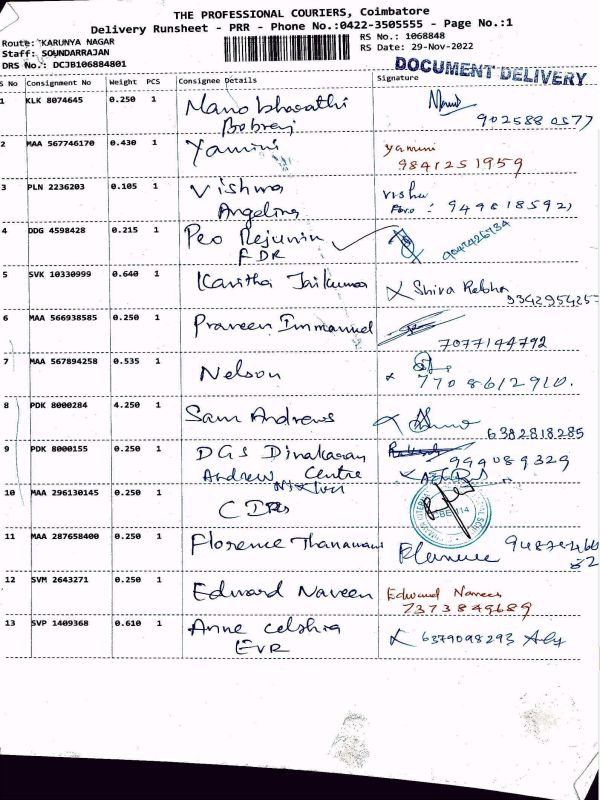 THE PROFESSIONAL COURIERS, Coimbatore
Delivery Runsheet - PRR - Phone No.:0422-3505555 - Page No.:1
Route: KARUNYA NAGAR
Staff: SOUNDARRAJAN
DRS No.: DCJB106884801
RS No.: 1068848
RS Date: 29-Nov-2022
DOCUMENT DELIVERY
S No Consignment No Weight PCS Consignee Details Signature
1 KLK 8074645 0.250 1 Mano bharathi
902588 0577
2 MAA 567746170 0.430 1 Yamini yamini
9841251959
3 PLN 2236203 0.105 1 Vishma
Angelina
4 DDG 4598428 0.215 1 Peo Rejunin
5 SVK 10330999 0.640 1 Kavitha Jaikumar Shiva Rebha
934295425
6 MAA 566938585 0.250 1 Praveen Immanuel
7077144792
7 MAA 567894258 0.535 1 Nelson
7708612910.
8 PDK 8000284 4.250 1 Sam Andrews
6382818285
9 PDK 8000155 0.250 1 DGS Dinakaran
999089329
Andrew Centre
10 MAA 296130145 0.250 1
11 MAA 287658400 0.250 1 Florence
12 SVM 2643271 0.250 1 Edward Naveen Edward Naveen
7373849689
13 SVP 1409368 0.610 1 Anne celshia
EVR
6379098293